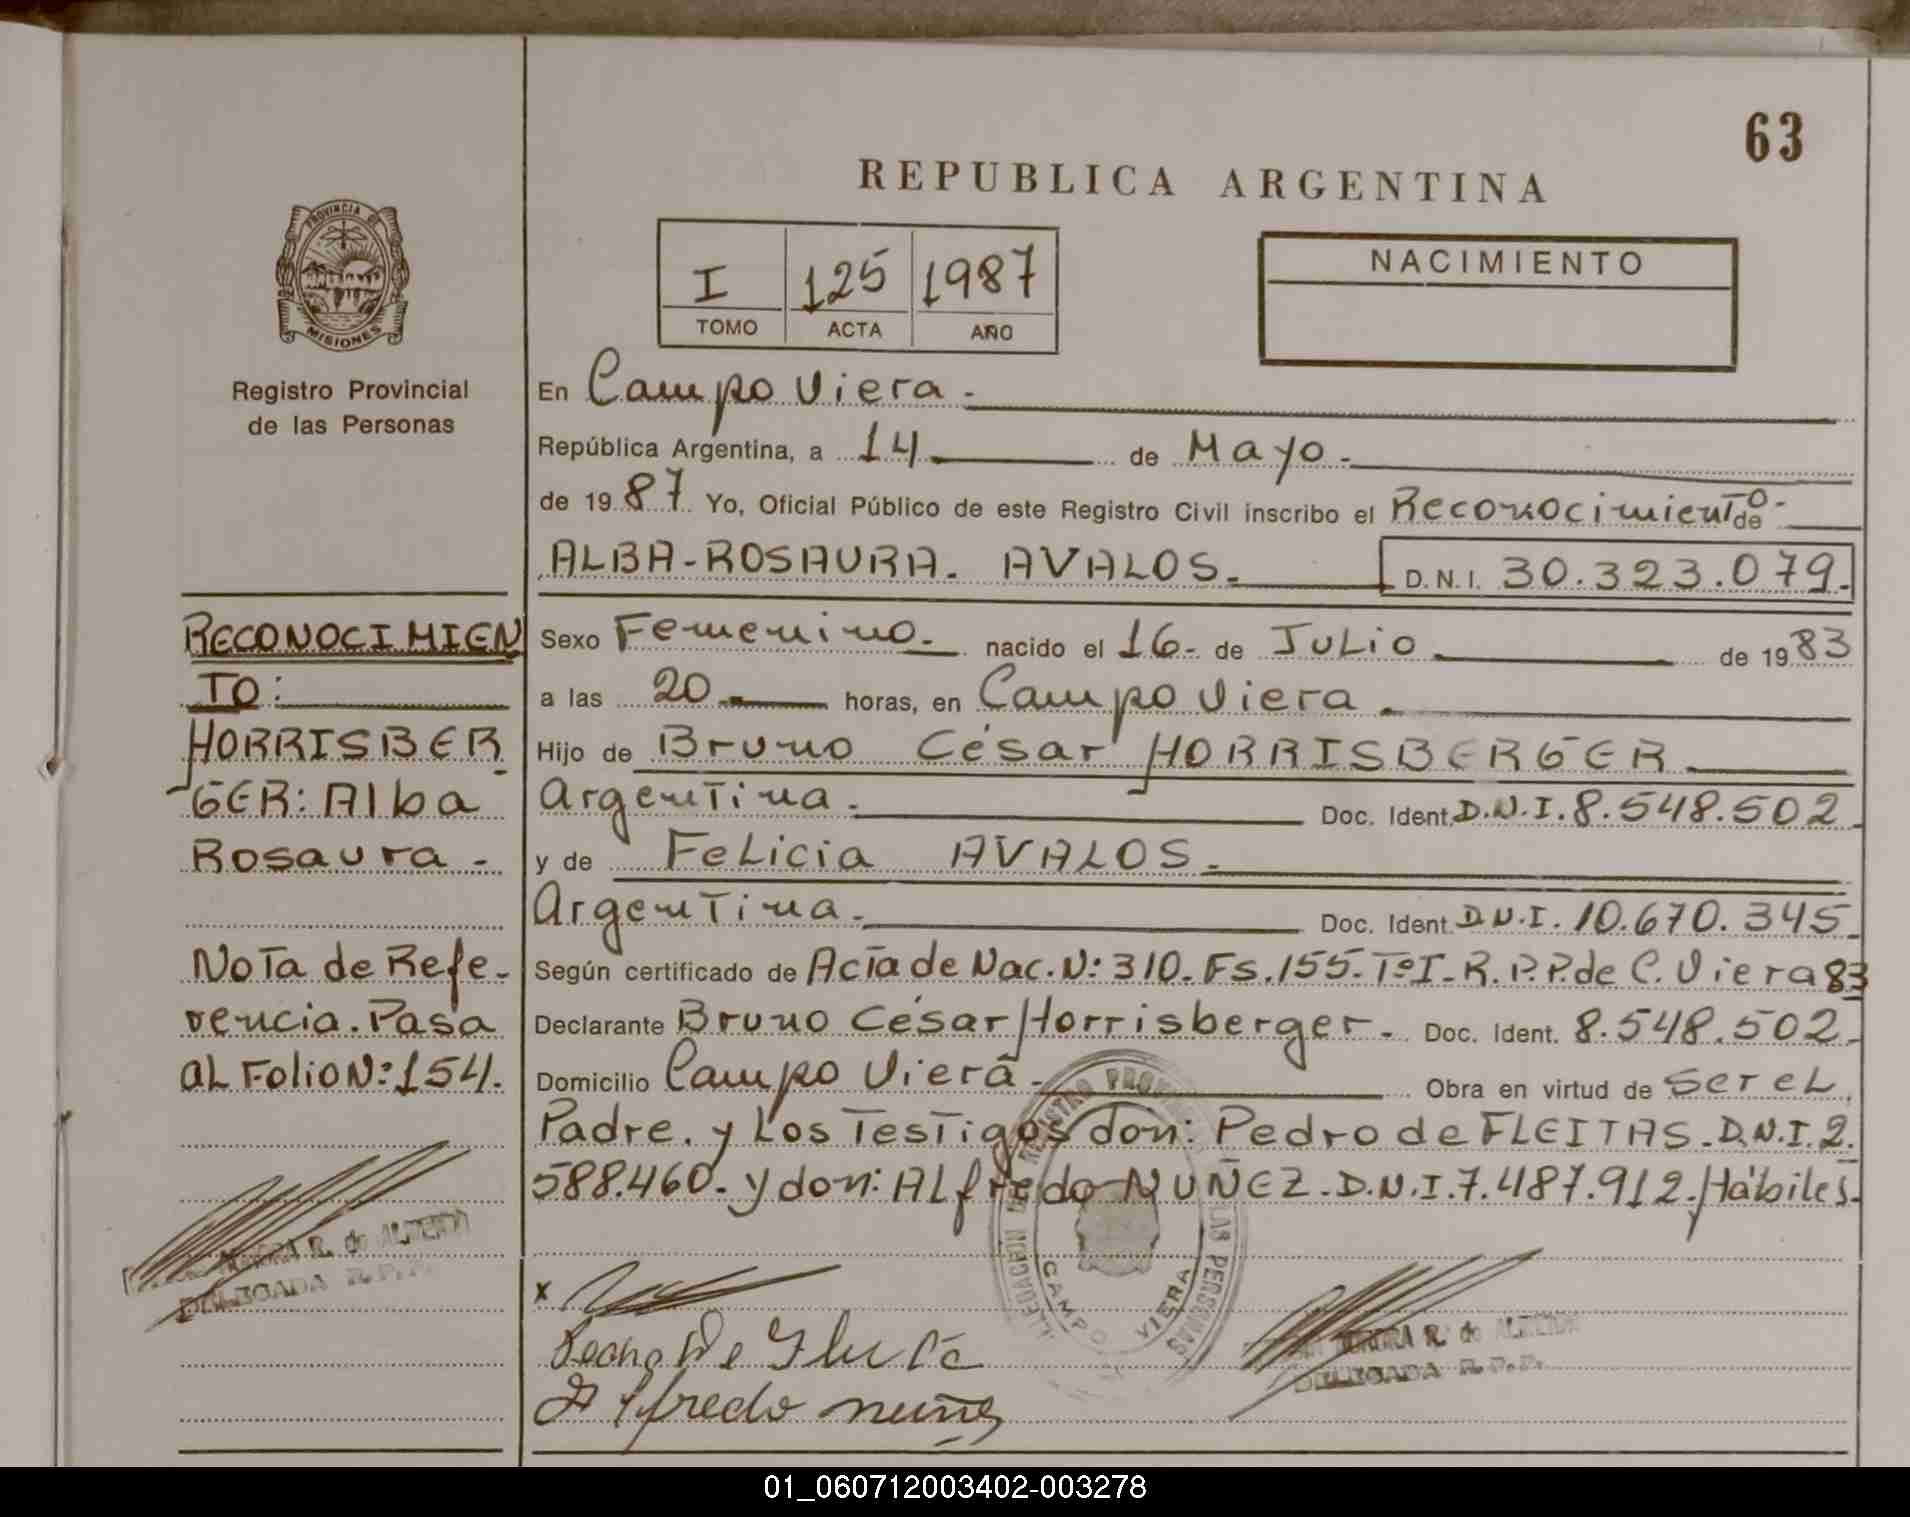 63
REPUBLICA ARGENTINA
PROVINCIA DE
MISIONES
Registro Provincial
de las Personas
I 125 1987
TOMO ACTA AÑO
NACIMIENTO
En Campo Viera.
República Argentina, a 14 de Mayo.
de 1987 Yo, Oficial Público de este Registro Civil inscribo el Reconocimiento de
ALBA-ROSAURA. AVALOS. D.N.I. 30.323.079.
Sexo Femenino. nacido el 16- de JULio de 1983
a las 20 horas, en Campo Viera.
Hijo de Bruno César HORRISBERGER
Argentina. Doc. Ident. D.N.I. 8.548.502
y de FeLicia AVALOS.
Argentina. Doc. Ident. D.N.I. 10.670.345
Según certificado de Acta de Nac. Nº 310. Fs. 155. Tº I. R.P.P. de C. Viera 83
Declarante Bruno César Horrisberger. Doc. Ident. 8.548.502
Domicilio Campo Viera. Obra en virtud de ser eL
Padre. y Los Testigos don: Pedro de FLEITAS. D.N.I. 2.
588.460. y don: ALfredo NUÑEZ. D.N.I. 7.487.912. Hábiles.
RECONOCIMIEN
TO:
HORRISBER
GER: Alba
Rosaura -
Nota de Refe-
rencia. Pasa
aL Folio Nº 154.
R. de ALMEIDA
DELEGADA R.P.P.
x
Alfredo nuñez
REGISTRO PROVINCIAL DE LAS PERSONAS
CAMPO VIERA
R. de ALMEIDA
DELEGADA R.P.P.
01_060712003402-003278